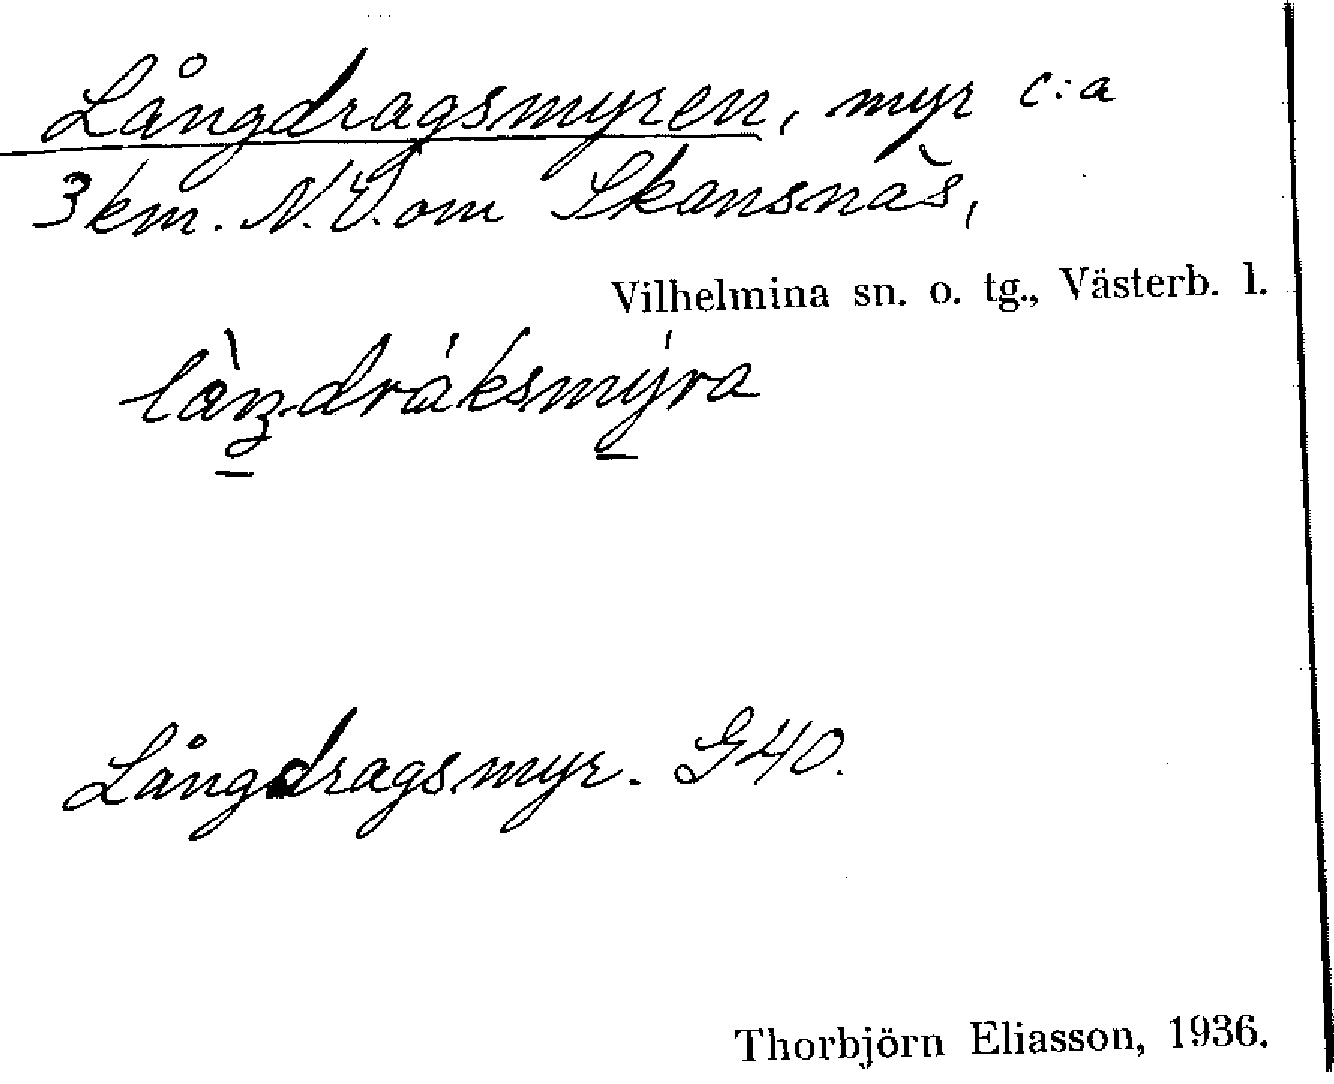 Långdragsmyren, myr c:a
3 km. N.V. om Skansnäs,
Vilhelmina sn. o. tg., Västerb. l.
Långdragsmyr. G40.
Thorbjörn Eliasson, 1936.